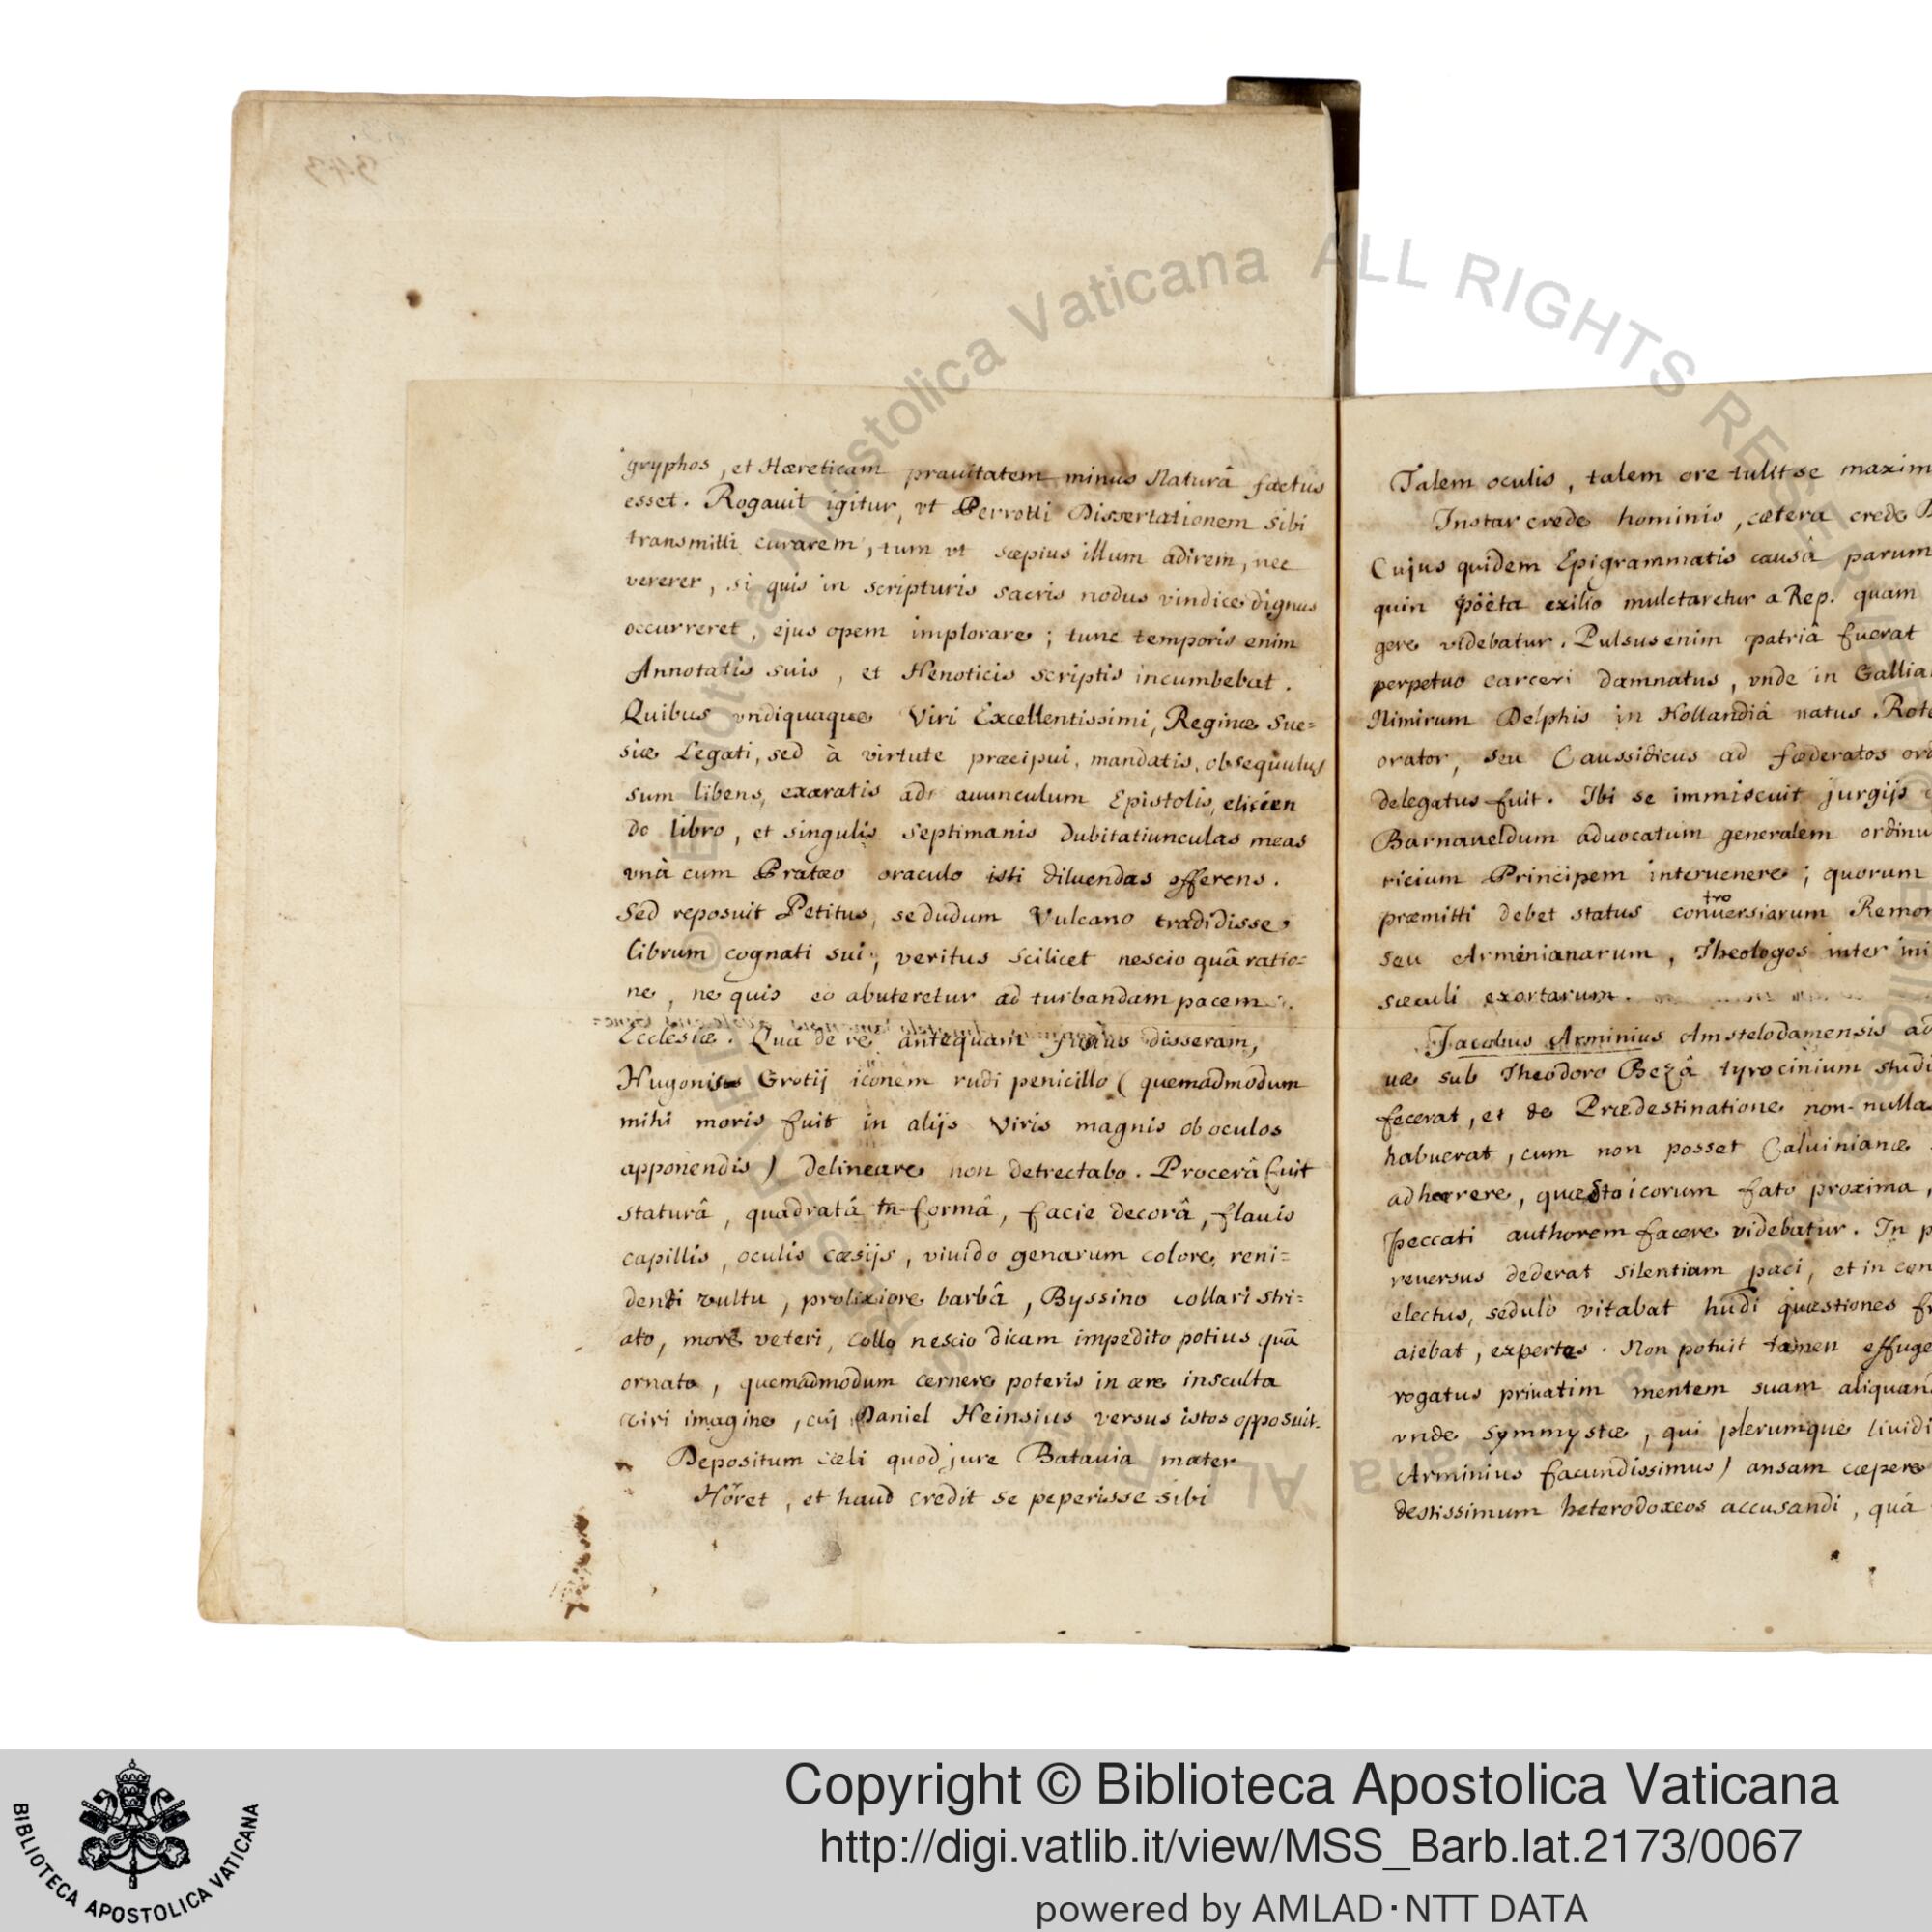 gryphos, et Hæreticam pravitatem minus Naturâ factus
esset. Rogauit igitur, vt Perrotti Dissertationem sibi
transmitti curarem, tum vt sæpius illum adirem, nec
vererer, si quis in scripturis sacris nodus vindice dignus
occurreret, ejus opem implorare; tunc temporis enim
Annotatis suis, et Henoticis scriptis incumbebat.
Quibus vndiquaque Viri Excellentissimi, Reginæ Sue=
siæ Legati, sed à virtute præcipui, mandatis, obsequutus
sum libens, exaratis ad avunculum Epistolis, elicien
do libro, et singulis septimanis dubitatiunculas meas
vnà cum Pratæo oraculo isti diluendas offerens.
Sed reposuit Petitus, se dudum Vulcano tradidisse
librum cognati sui, veritus scilicet nescio quâ ratio=
ne, ne quis eo abuteretur ad turbandam pacem
Ecclesiæ. Qua de re antequam fusius disseram,
Hugonis Grotij iconem rudi penicillo (quemadmodum
mihi moris fuit in alijs Viris magnis ob oculos
apponendis) delineare non detrectabo. Procerâ fuit
staturâ, quadratâ formâ, facie decorâ, flauis
capillis, oculis cæsijs, viuido genarum colore, reni=
denti vultu, prolixiore barbâ, Byssino collari stri=
ato, more veteri, collo nescio dicam impedito potius quã
ornato, quemadmodum cernere poteris in ære insculta
viri imagine, cuj Daniel Heinsius versus istos opposuit.
Depositum cœli quod jure Batauia mater
Horret, et haud credit se peperisse sibi
Talem oculis, talem ore tulit se maxim
Instar crede hominis, cætera crede D
Cujus quidem Epigrammatis causâ parum
quin poëta exilio mulctaretur a Rep. quam
gere videbatur. Pulsus enim patriâ fuerat
perpetuo carceri damnatus, vnde in Gallia
Nimirum Delphis in Hollandiâ natus. Rote
orator, seu Caussidicus ad fœderatos ord
delegatus fuit. Ibi se immiscuit jurgijs
Barnaueldum aduocatum generalem ordinu
ricium Principem interuenere; quorum
præmitti debet status controversiarum Remon
seu Arminianarum, Theologos inter ini
sæculi exortarum.
Jacobus Arminius Amstelodamensis ad
uæ sub Theodoro Bezâ tyrocinium studi
fecerat, et de Prædestinatione non-nulla
habuerat, cum non posset Caluinianæ
adhærere, quæ Stoicorum fato proxima,
peccati authorem facere videbatur. In p
reuersus dederat silentiam paci, et in con
electus, sedulo vitabat hudi quæstiones fr
aiebat, expertas. Non potuit tamen effuge
rogatus priuatim mentem suam aliquand
vnde symmystæ, qui plerumque liuidi
Arminius facundissimus) ansam cæpere
destissimum heterodoxeos accusandi, quâ
© Biblioteca Apostolica Vaticana ALL RIGHTS RESERVED
BIBLIOTECA APOSTOLICA VATICANA
Copyright © Biblioteca Apostolica Vaticana
http://digi.vatlib.it/view/MSS_Barb.lat.2173/0067
powered by AMLAD·NTT DATA